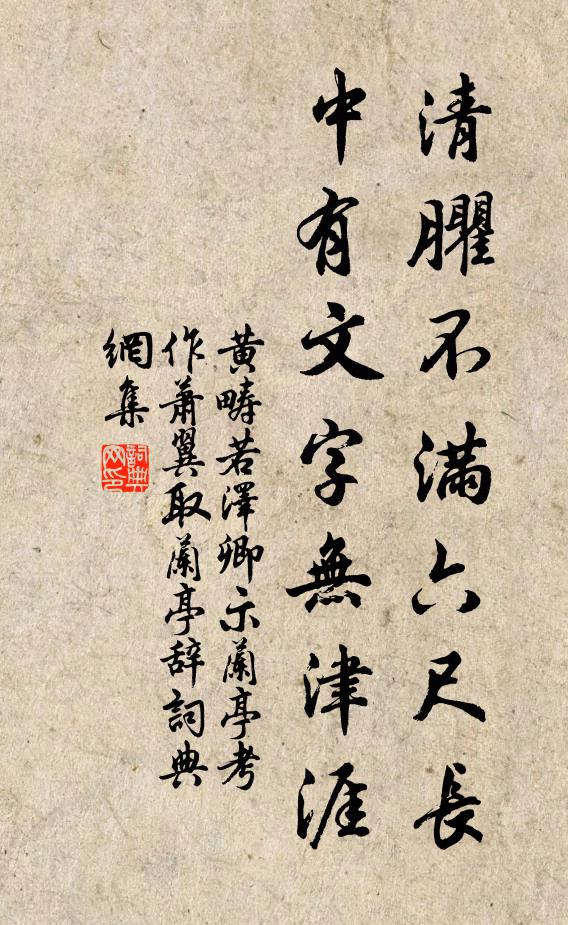 清臞不滿六尺長
中有文字無津涯
黃疇若澤卿示蘭亭考
作蕭翼取蘭亭辞詞典
網集
詞典網印